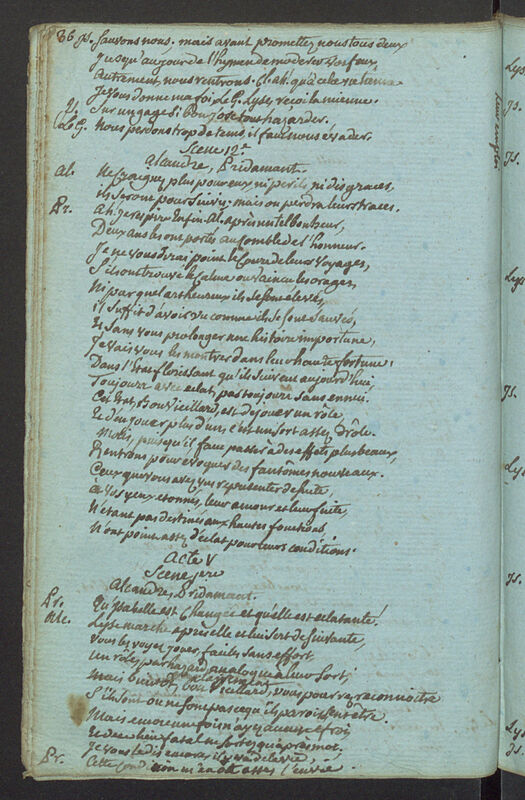 86 Is. Sauvons nous. mais avant promettez nous tous deux
Jusqu'au jour de l'hymen de moderer vos feux,
Autrement, nous rentrons. Cl.
Je vous donne ma foi. L.G. Lyse, reçoi la mienne.
Sur un gage si bon j'ose tout hazarder.
L.G. Nous perdons trop de tems, il faut nous evader.
Scene 12.e
Alcandre, Pridamant.
Al. Ne craignez plus pour eux ni perils, ni disgraces,
ils seront poursuivis, mais on perdra leurs traces.
Pr. Ah! je respire enfin. Al. après un tel bonheur,
Deux ans les ont portés au comble de l'honneur.
Je ne vous dirai point le cours de leurs voyages,
S'ils ont trouvé le calme ou vaincu les orages,
Ni par quel art heureux ils se sont elevés,
il suffit d'avoir vu comme ils se sont sauvés,
Et sans vous prolonger une histoire importune,
Je vais vous les montrer dans leur haute fortune.
Dans l'état florissant qu'ils suivent aujourd'hui,
Toujours avec eclat, pas toujours sans ennui.
Cet état, bon vieillard, est de jouer un rôle,
Et d'en jouer plus d'un, c'est un sort assez drôle.
Mais, puisqu'il faut passer à des effets plus beaux,
Rentrons pour evoquer des fantômes nouveaux.
Ceux que vous avez vus représenter de suite,
à vos yeux etonnés, leur amour et leur fuite,
N'étant pas destinés aux hautes fonctions,
N'ont point assez d'éclat pour leurs conditions.
Acte V
Scene 1ere
Alcandre, Pridamant.
Pr. Qu'Isabelle est changée et qu'elle est eclatante!
Alc. Lyse marche après elle et lui sert de suivante,
Vous les voyez jouer, facils, sans effort,
Un rôle, par hazard, analogue à leur sort;
Mais bientôt, bon vieillard, vous pourrez reconnoitre
S'ils sont ou ne sont pas ce qu'ils paroissent être.
Mais encore une fois n'ayez aucun effroi,
Et de ce lieu fatal ne sortez qu'après moi.
Je vous le dis encore, il y va de la vie,
Pr. Cette condition m'en ôte assez l'envie.